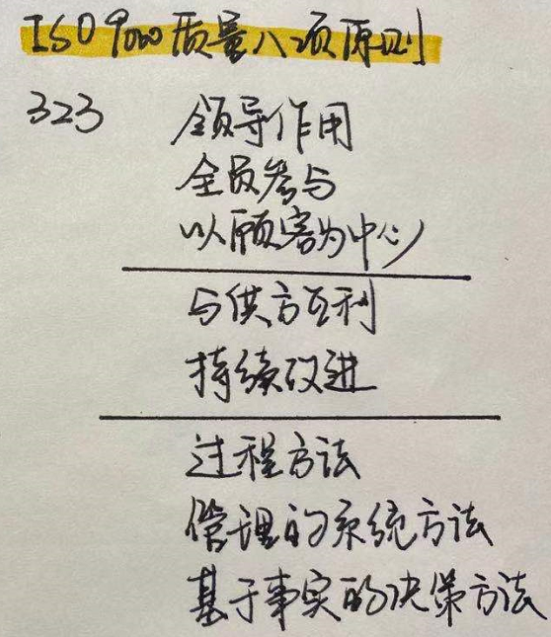 ISO 9000 质量八项原则
323 领导作用
全员参与
以顾客为中心
与供方互利
持续改进
过程方法
管理的系统方法
基于事实的决策方法